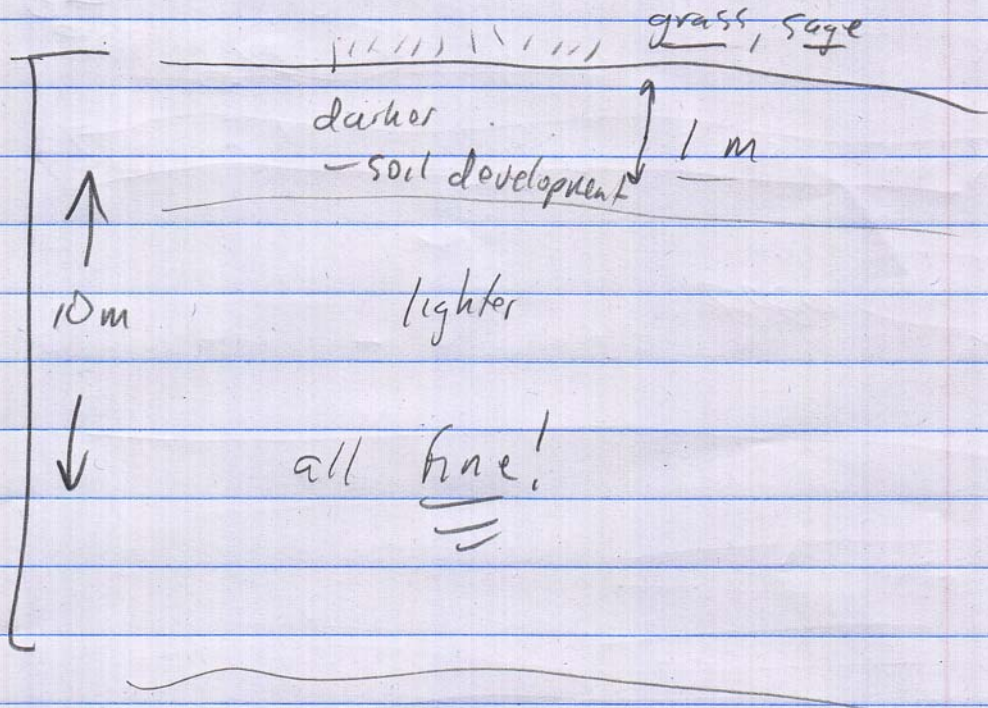 grass, sage
darker
1 m
- soil development
10m
lighter
all fine!